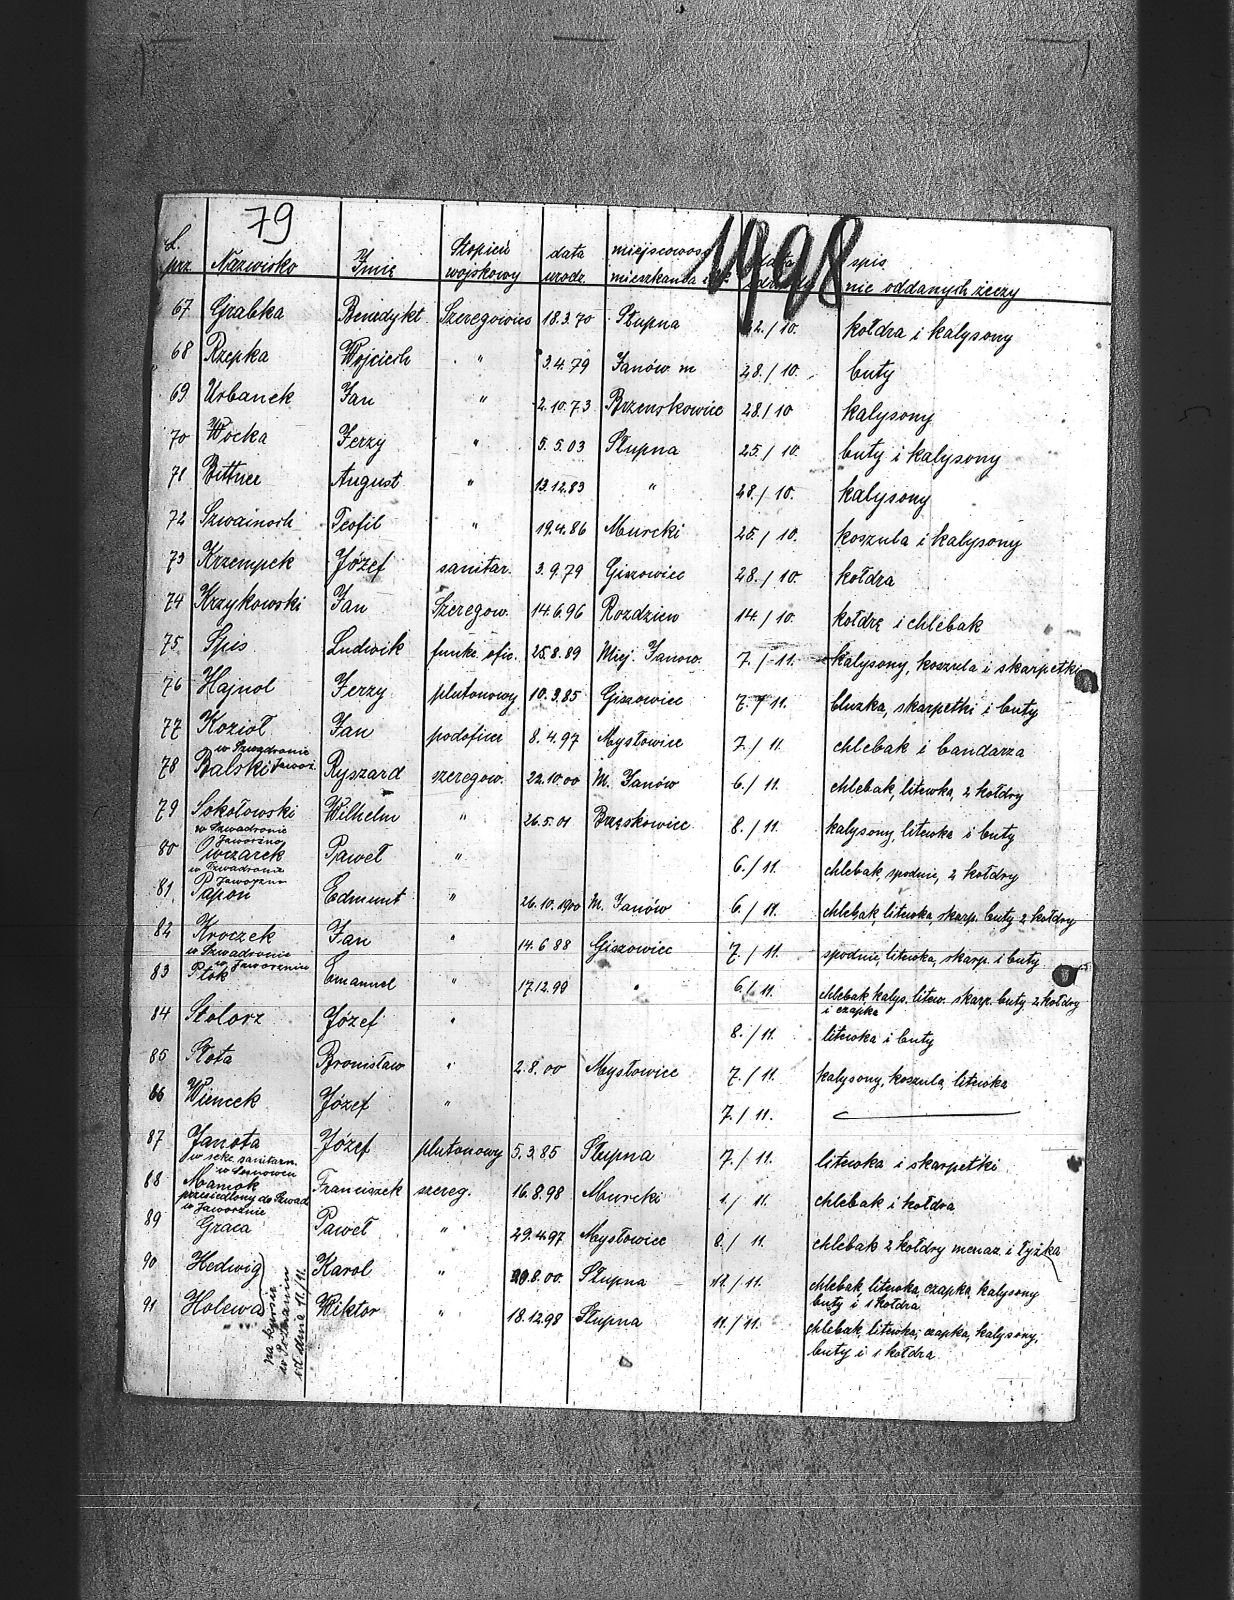 79
1998
L. prz. Nazwisko Imię Stopień wojskowy data urodz. miejscowość mieszkania spis nie oddanych rzeczy
67 Grabka Benedykt Szeregowiec 18.3.70 Słupna 22./10. kołdra i kalysony
68 Rzepka Wojciech " 3.4.79 Janów m 28./10. buty
69 Urbanek Jan " 2.10.73 Brzenskowice 28./10 kalysony
70 Wocka Jerzy " 5.5.03 Słupna 25./10. buty i kalysony
71 Bittner August " 13.12.83 " 28./10. kalysony
72 Szwainoch Teofil " 19.4.86 Murcki 25./10. koszula i kalysony
73 Krzempek Józef sanitar. 3.9.79 Giszowiec 28./10. kołdra
74 Krzykowski Jan Szeregow. 14.6.96 Rozdzien 14./10. kołdrę i chlebak
75 Spis Ludwik funkc. ofic. 25.8.89 Miej. Janow. 7./11. kalysony, koszula i skarpetki
76 Hajnol Jerzy plutonowy 10.3.85 Giszowiec 7./11. bluzka, skarpetki i buty
77 Kozioł Jan podoficer 8.4.97 Mysłowice 7./11. chlebak i bandarza
w Szwadronie Jaworz.
78 Balski Ryszard szeregow. 22.10.00 M. Janów 6./11. chlebak, litewka, 2 kołdry
79 Sokołowski Wilhelm " 26.5.01 Brzęskowice 8./11. kalysony, litewka i buty
w Szwadronie Jaworzno
80 Owczarek Paweł " 6./11. chlebak, spodnie, 2 kołdry
w Szwadronie Jaworzno
81. Papon Edmunt " 26.10.1900 M. Janów 6./11. chlebak, litewka, skarp. buty 2 kołdry
82 Kroczek Jan " 14.6.88 Giszowiec 7./11. spodnie, litewka, skarp. i buty
w Szwadronie w Jaworznie
83 Ptok Emanuel " 17.12.99 " 6./11. chlebak, kalys. litew. skarp. buty, 2 kołdry
i czapka
84 Stolorz Józef " 8./11. litewka i buty
85 Słota Bronisław " 2.8.00 Mysłowice 7./11. kalysony, koszula, litewka
86 Wiencek Józef " 7./11.
87 Janota Józef plutonowy 5.3.85 Słupna 7./11. litewka i skarpetki
w sekc. sanitarn.
w Sosnowcu
88 Mamok Franciszek szereg. 16.8.98 Murcki 1./11. chlebak i kołdra
przesiedlony do Szwad.
w Jaworznie
89 Graca Paweł " 29.4.97 Mysłowice 8./11. chlebak 2 kołdry menaz. i łyżka
90 Hedwig Karol " 20.8.00. Słupna 11./11. chlebak, litewka, czapka, kalysony
buty i 1 kołdra
91 Holewa Wiktor " 18.12.98 Słupna 11./11. chlebak, litewka, czapka, kalysony,
buty i 1 kołdra
na kursie
w Poznaniu
od dnia 11/11.